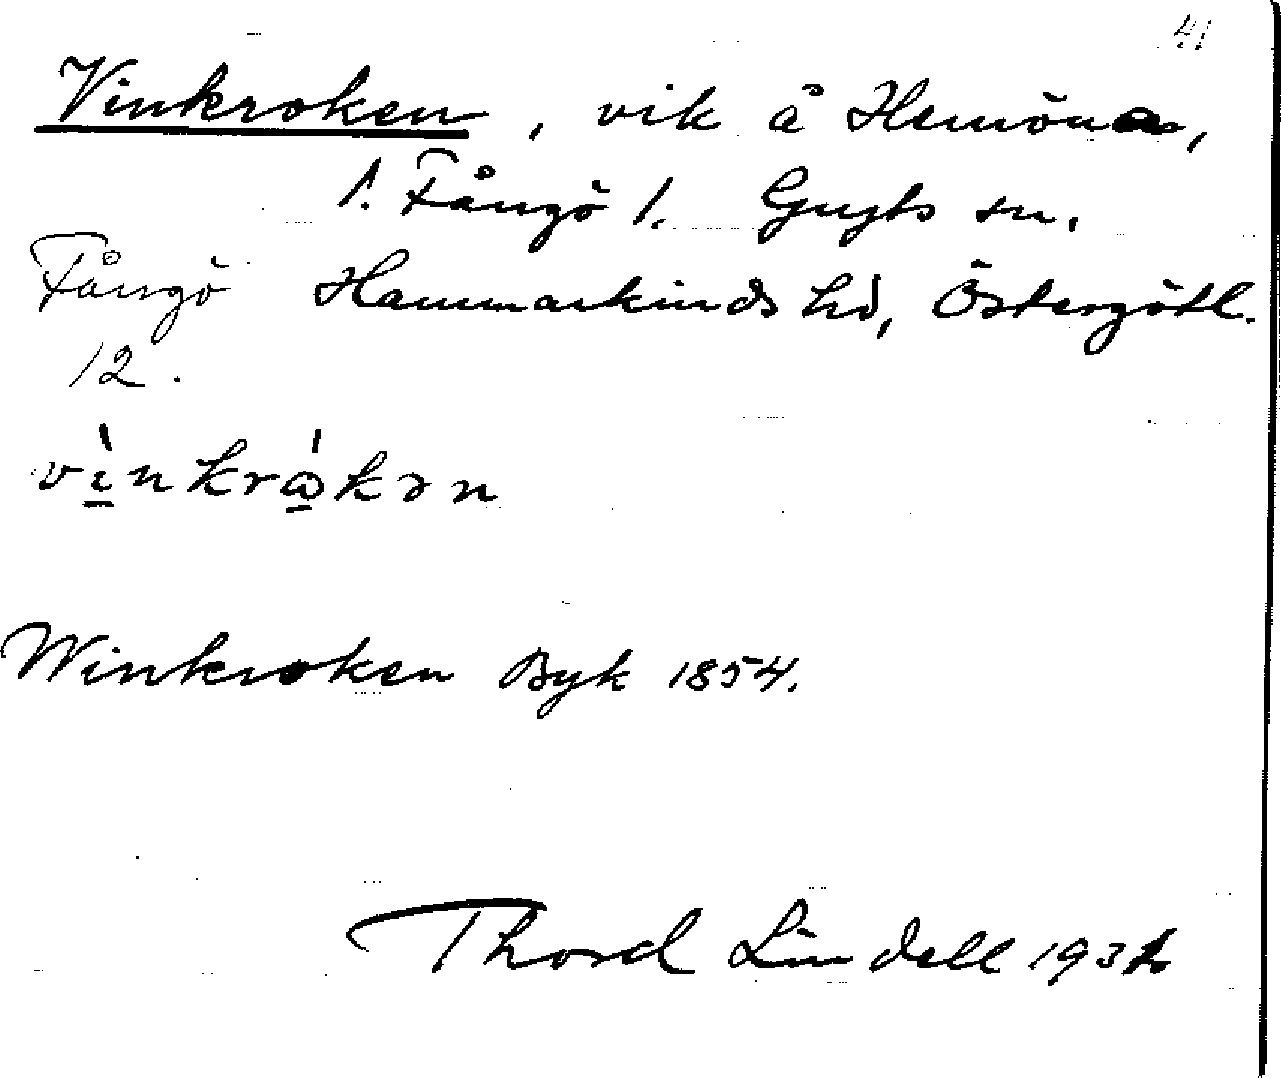 41
Vinkroken, vik å Hemön,
1. Fångö 1. Gryts sn,
Fångö Hammarkinds hd, Östergötl.
12.
vinkrokən
Winkroken Byk 1854.
Thord Lindell